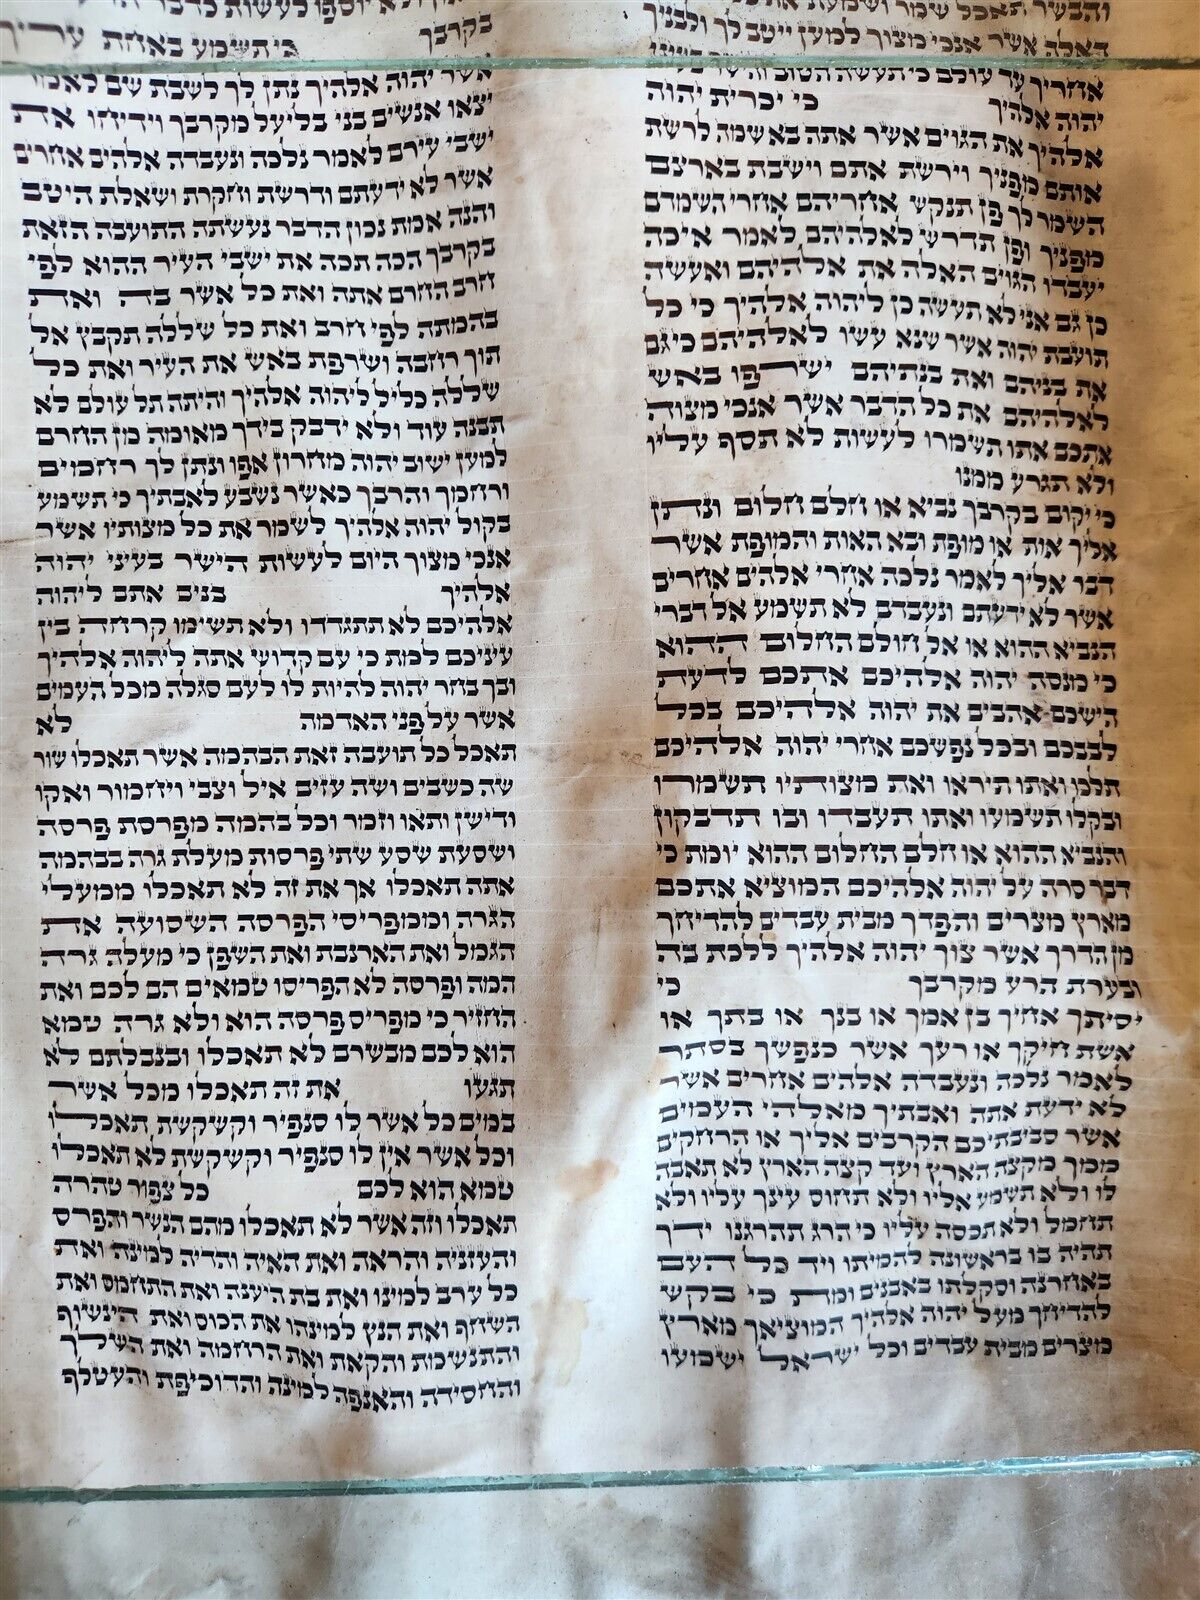 והבשר תאכל שמר ושמעת את כל
האלה אשר אנכי מצוך למען ייטב לך ולבניך
אחריך עד עולם כי תעשה הטוב והישר בעיני
יהוה אלהיך כי יכרית יהוה
אלהיך את הגוים אשר אתה בא שמה לרשת
אותם מפניך וירשת אתם וישבת בארצם
השמר לך פן תנקש אחריהם אחרי השמדם
מפניך ופן תדרש לאלהיהם לאמר איכה
יעבדו הגוים האלה את אלהיהם ואעשה
כן גם אני לא תעשה כן ליהוה אלהיך כי כל
תועבת יהוה אשר שנא עשו לאלהיהם כי גם
את בניהם ואת בנתיהם ישרפו באש
לאלהיהם את כל הדבר אשר אנכי מצוה
אתכם אתו תשמרו לעשות לא תסף עליו
ולא תגרע ממנו
כי יקום בקרבך נביא או חלם חלום ונתן
אליך אות או מופת ובא האות והמופת אשר
דבר אליך לאמר נלכה אחרי אלהים אחרים
אשר לא ידעתם ונעבדם לא תשמע אל דברי
הנביא ההוא או אל חולם החלום ההוא
כי מנסה יהוה אלהיכם אתכם לדעת
הישכם אהבים את יהוה אלהיכם בכל
לבבכם ובכל נפשכם אחרי יהוה אלהיכם
תלכו ואתו תיראו ואת מצותיו תשמרו
ובקלו תשמעו ואתו תעבדו ובו תדבקון
והנביא ההוא או חלם החלום ההוא יומת כי
דבר סרה על יהוה אלהיכם המוציא אתכם
מארץ מצרים והפדך מבית עבדים להדיחך
מן הדרך אשר צוך יהוה אלהיך ללכת בה
ובערת הרע מקרבך כי
יסיתך אחיך בן אמך או בנך או בתך או
אשת חיקך או רעך אשר כנפשך בסתר
לאמר נלכה ונעבדה אלהים אחרים אשר
לא ידעת אתה ואבתיך מאלהי העמים
אשר סביבתיכם הקרבים אליך או הרחקים
ממך מקצה הארץ ועד קצה הארץ לא תאבה
לו ולא תשמע אליו ולא תחוס עינך עליו ולא
תחמל ולא תכסה עליו כי הרג תהרגנו ידך
תהיה בו בראשונה להמיתו ויד כל העם
באחרנה וסקלתו באבנים ומת כי בקש
להדיחך מעל יהוה אלהיך המוציאך מארץ
מצרים מבית עבדים וכל ישראל ישמעו
ולא יוספו לעשות כדבר
בקרבך כי תשמע באחת עריך
אשר יהוה אלהיך נתן לך לשבת שם לאמר
יצאו אנשים בני בליעל מקרבך וידיחו את
ישבי עירם לאמר נלכה ונעבדה אלהים אחרים
אשר לא ידעתם ודרשת וחקרת ושאלת היטב
והנה אמת נכון הדבר נעשתה התועבה הזאת
בקרבך הכה תכה את ישבי העיר ההוא לפי
חרב החרם אתה ואת כל אשר בה ואת
בהמתה לפי חרב ואת כל שללה תקבץ אל
תוך רחבה ושרפת באש את העיר ואת כל
שללה כליל ליהוה אלהיך והיתה תל עולם לא
תבנה עוד ולא ידבק בידך מאומה מן החרם
למען ישוב יהוה מחרון אפו ונתן לך רחמים
ורחמך והרבך כאשר נשבע לאבתיך כי תשמע
בקול יהוה אלהיך לשמר את כל מצותיו אשר
אנכי מצוך היום לעשות הישר בעיני יהוה
אלהיך בנים אתם ליהוה
אלהיכם לא תתגדדו ולא תשימו קרחה בין
עיניכם למת כי עם קדוש אתה ליהוה אלהיך
ובך בחר יהוה להיות לו לעם סגלה מכל העמים
אשר על פני האדמה לא
תאכל כל תועבה זאת הבהמה אשר תאכלו שור
שה כשבים ושה עזים איל וצבי ויחמור ואקו
ודישן ותאו וזמר וכל בהמה מפרסת פרסה
ושסעת שסע שתי פרסות מעלת גרה בבהמה
אתה תאכלו אך את זה לא תאכלו ממעלי
הגרה וממפריסי הפרסה השסועה את
הגמל ואת הארנבת ואת השפן כי מעלה גרה
המה ופרסה לא הפריסו טמאים הם לכם ואת
החזיר כי מפריס פרסה הוא ולא גרה טמא
הוא לכם מבשרם לא תאכלו ובנבלתם לא
תגעו את זה תאכלו מכל אשר
במים כל אשר לו סנפיר וקשקשת תאכלו
וכל אשר אין לו סנפיר וקשקשת לא תאכלו
טמא הוא לכם כל צפור טהרה
תאכלו וזה אשר לא תאכלו מהם הנשר והפרס
והעזניה והראה ואת האיה והדיה למינה ואת
כל ערב למינו ואת בת היענה ואת התחמס ואת
השחף ואת הנץ למינהו את הכוס ואת הינשוף
והתנשמת והקאת ואת הרחמה ואת השלך
והחסידה והאנפה למינה והדוכיפת והעטלף